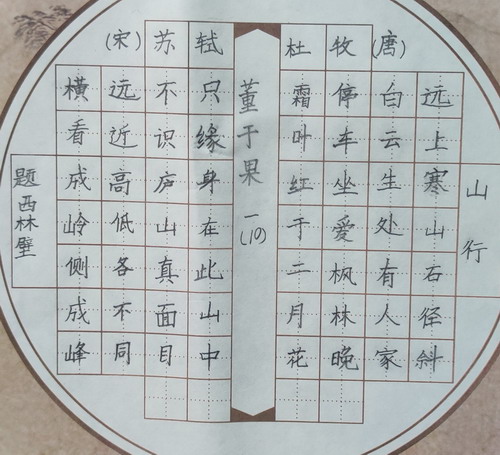 山行
杜牧(唐)
远上寒山石径斜
白云生处有人家
停车坐爱枫林晚
霜叶红于二月花
董于果 一(10)
题西林壁
(宋)苏轼
横看成岭侧成峰
远近高低各不同
不识庐山真面目
只缘身在此山中